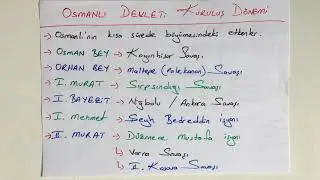 OSMANLI DEVLETİ KURULUŞ DÖNEMİ
→ Osmanlı'nın kısa sürede büyümesindeki etkenler.
→ OSMAN BEY → Koyunhisar Savaşı.
→ ORHAN BEY → Maltepe (Palekanon) Savaşı
→ I. MURAT → Sırpsındığı Savaşı
→ I. BAYEZİT → Niğbolu / Ankara Savaşı
→ I. Mehmet → Şeyh Bedreddin isyanı
→ II. MURAT → Düzmece Mustafa isyanı
↳ Varna Savaşı
↳ II. Kosova Savaşı